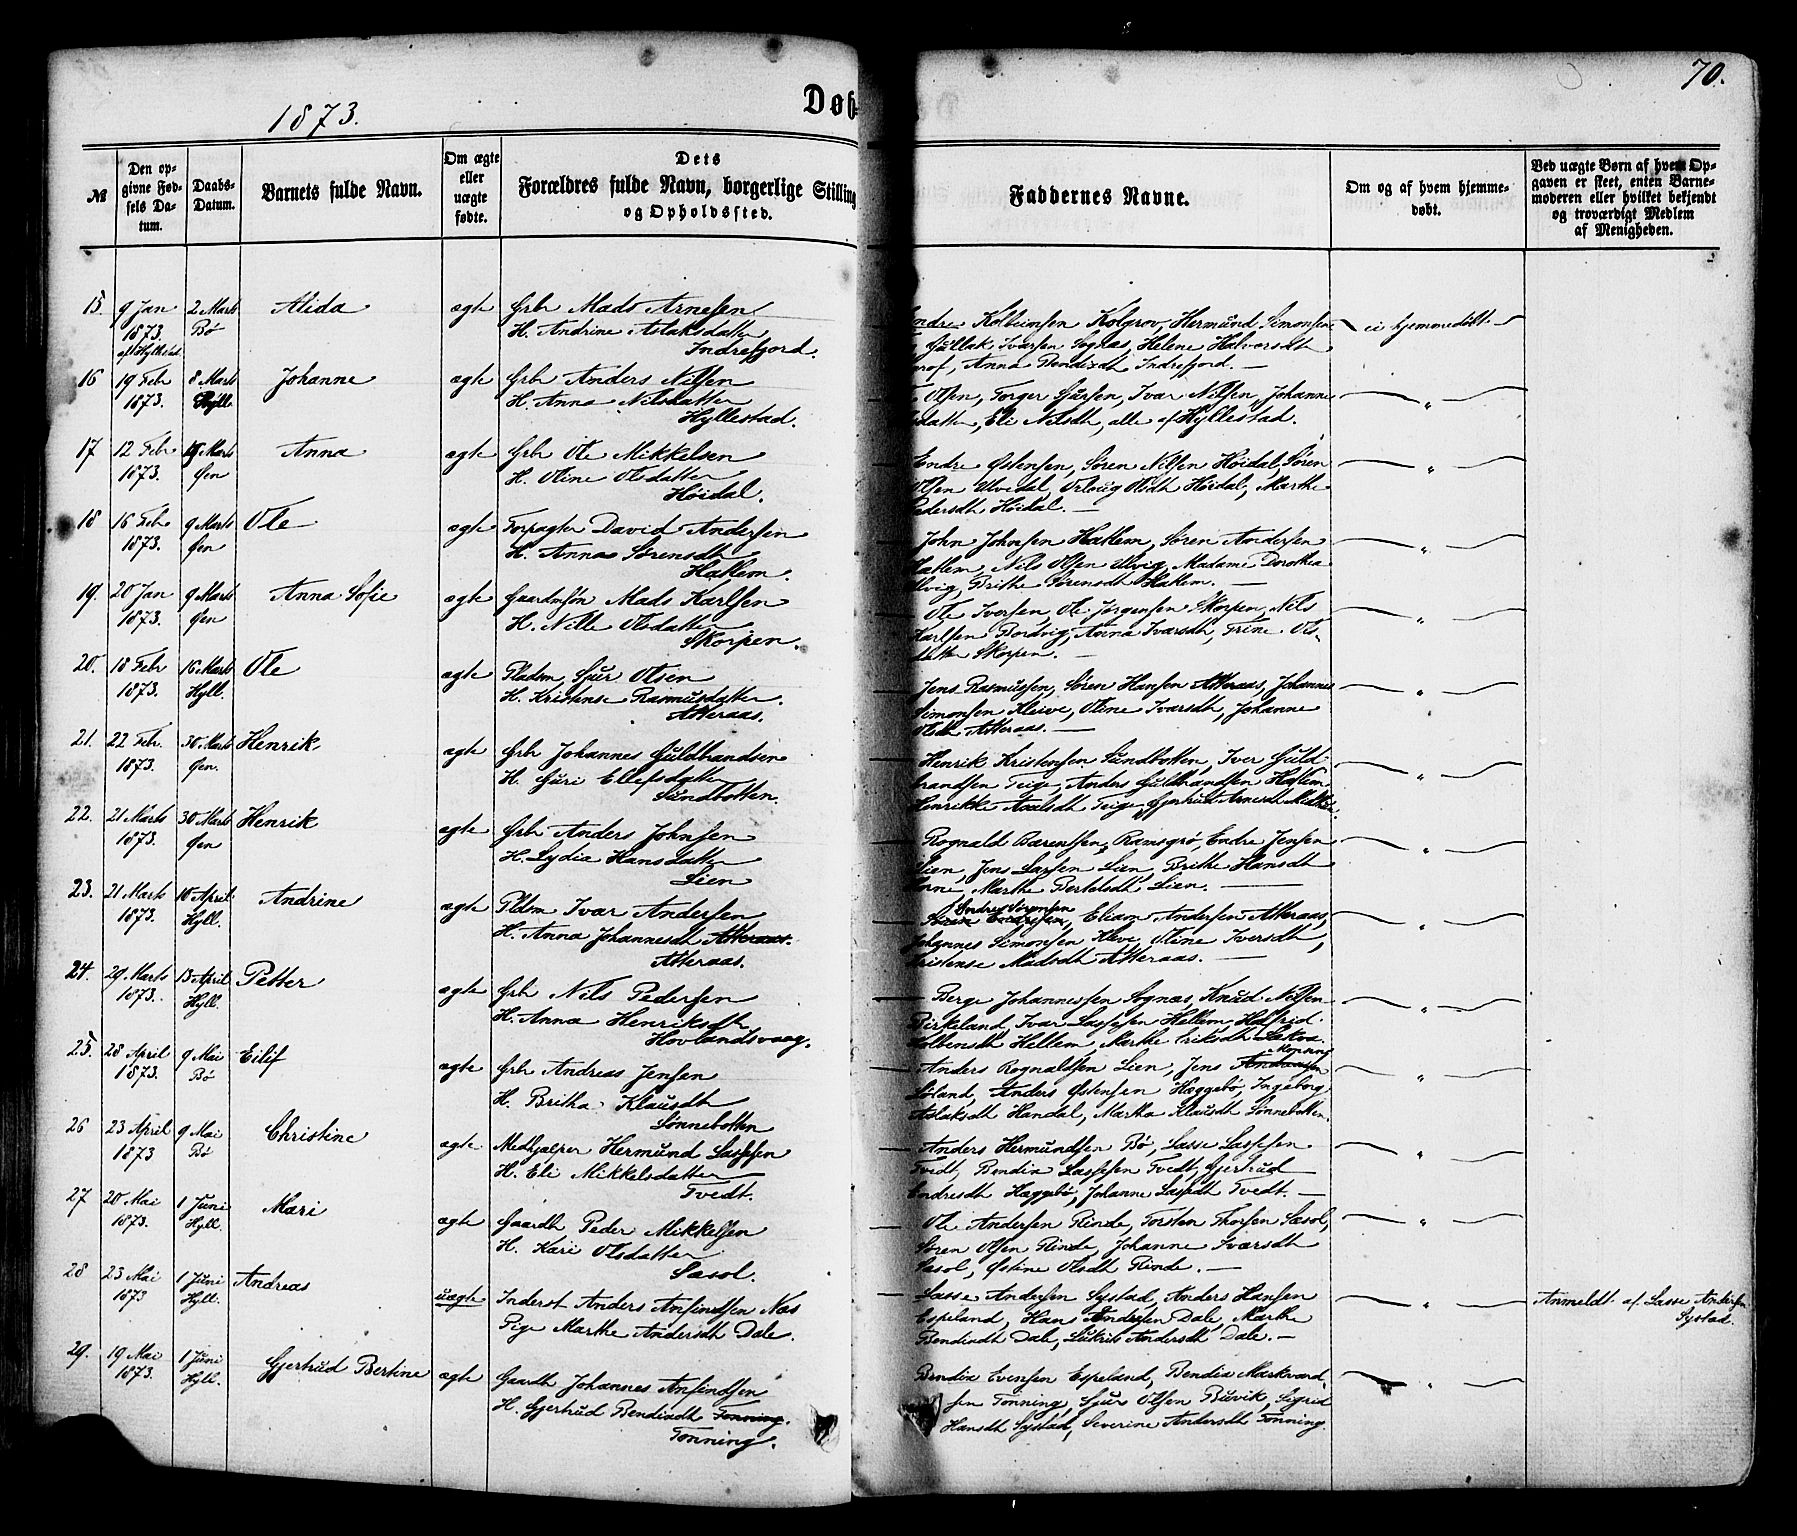 70.
1873.
Døb-
№
Den op-
givne Fød-
sels Da-
tum.
Daabs-
Datum.
Barnets fulde Navn.
Om ægte
eller
uægte
fødte.
Dets
Forældres fulde Navn, borgerlige Stilling
og Opholdssted.
Faddernes Navne.
Om og af hvem hjemme-
døbt.
Ved uægte Børn af hvem Op-
gaven er skeet, enten Barne-
moderen eller hvilket bekjendt
og troværdigt Medlem
af Menigheden.
15. 9 Jan 2 Marts Alida ægte Grbr Mads Arnesen
1873. Bø H. Andrine Aslaksdatter
Indrefjord.
Kolbeinsen Kolgrov, Hermund Simonsen
Gullak Ivarsen Sognas, Helene Halvorsdt
Anna Bendixdt Indrefjord. —
ei hjemmedøbt.
16 19 Febr 8 Marts Johanne ægte Grbr Anders Nilsen
1873. Hyll H. Anna Nilsdatter
Hyllestad.
Olsen, Torger Sjursen, Ivar Nilsen, Johanne
datter, Eli Nilsdt, alle af Hyllestad.
"
17 12 Febr 9 Marts Anna ægte Grbr Ole Mikkelsen
1873. Øen H. Oline Olsdatter
Høidal.
Endre Østensen, Søren Nilsen Høidal, Søren
Olsen Ulvedal, Oldt Høidal, Marthe
Pedersdt Høidal. —
"
18 16 Febr 9 Marts Ole ægte Forpagter David Andersen
1873. Øen H. Anna Sørensdt
Hatlem.
John Johnsen Hatlem, Søren Andersen
Hatlem, Nils Olsen Ulvig, Madame Dorothea
Ulvig, Brithe Sørensdt Hatlem. —
"
19. 20 Jan 9 Marts Anna Sofie ægte Gaardmsøn Mads Karlsen
1873. Øen H. Nille Olsdatter
Skorpen.
Ole Iversen, Ole Jørgensen Skorpen, Nils
Karlsen Bordvig, Anna Ivarsdt, Trine Ols-
datter Skorpen. —
"
20. 18 Febr 16 Marts Ole ægte Pladsm Sjur Olsen
1873. Hyll. H. Kristense Rasmusdatter.
Atteraas.
Jens Rasmussen, Søren Hansen Atteraas, Johannes
Simonsen Kleive, Oline Ivarsdt, Johanne
Olsdt Atteraas. —
"
21. 22 Febr. 30 Marts Henrik ægte Grbr Johannes Guldbrandsen
1873. Øen. H. Guri Ellefsdatter
Sundbotten.
Henrik Kristensen Sundbotten, Iver Guld
brandsen Teige, Anders Guldbrandsen Hatlem
Henrikke Teige, Gjertrud Arnesdt
"
22. 21 Marts 30 Marts Henrik ægte Grbr Anders Johnsen
1873. Øen H. Lydia Hansdatter
Lien
Rognald Barentsen, Ramsgrø, Endre Jensen
Lien, Jens Larsen Lien, Brithe Hansdt
Marthe Bertelsdt Lien. —
"
23. 21 Marts 10 April Andrine ægte Pldsm Ivar Andersen
1873. Hyll. H. Anna Johannesdt Atteraas.
Atteraas.
Endre Sørensen
Søren Endresen, Eliam Andersen Atteraas,
Johannes Simonsen Kleve, Oline Iversdt,
Kristense Madsdt Atteraas. —
"
24. 29 Marts 13 April Petter ægte Grbr Nils Pedersen
1873. Hyll. H. Anna Henriksdt
Hovlandsvaag.
Berge Johannessen Sognas, Knud Nilsen
Birkeland, Ivar Lassesen Hellem, Halfrid
Kolbensdt Hellem, Marthe Eriksdt
25. 28 April 9 Mai Eilif ægte Grbr Andreas Jensen
1873. Bø H. Britha Klausdt
Sønnebotten
Anders Rognaldsen Lien, Jens
Anders Østensen Hæggebø, Ingeborg
Aslaksdt Handal, Martha Klausdt Sønnebotten.
"
26 23 April 9 Mai Christine ægte Medhjælper Hermund Lassesen
1873 Bø H. Eli Mikkelsdatter
Tvedt.
Anders Hermundsen Bø, Lasse Lassesen
Tvedt, Bendix Lassesen Tvedt, Gjertrud
Endresdt Hæggebø, Johanne Lassedt Tvedt. —
"
27 20 Mai 1 Juni Mari ægte Gaardbr Peder Mikkelsen
1873. Hyll. H. Kari Olsdatter
Sæsol.
Ole Andersen Rinde, Torsten Thorsen Sæsol,
Søren Olsen Rinde, Johanne Ivarsdt
Sæsol, Østine Olsdt Rinde. —
"
28 23 Mai 1 Juni Andreas uægte Inderst Anders Ansindsen Næs
1873 Hyll. Pige Marthe Andersdt Dale.
Lasse Andersen Systad, Anders Hansen
Espeland, Hans Andersen Dale, Marthe
Bendixdt Dale, Lukris Andersdt Dale. —
"
Anmeldt af Lasse Andersen
Systad.
29. 19 Mai 1 Juni Gjertrud Bertine ægte Gaardbr Johannes Ansindsen
1873. Hyll. H. Gjertrud Bendixdt Tonning.
Tonning.
Bendix Evensen Espeland, Bendix Markvard
sen Tonning, Sjur Olsen Buvik, Sigrid
Hansdt Systad, Severine Andersdt Tonning.
"